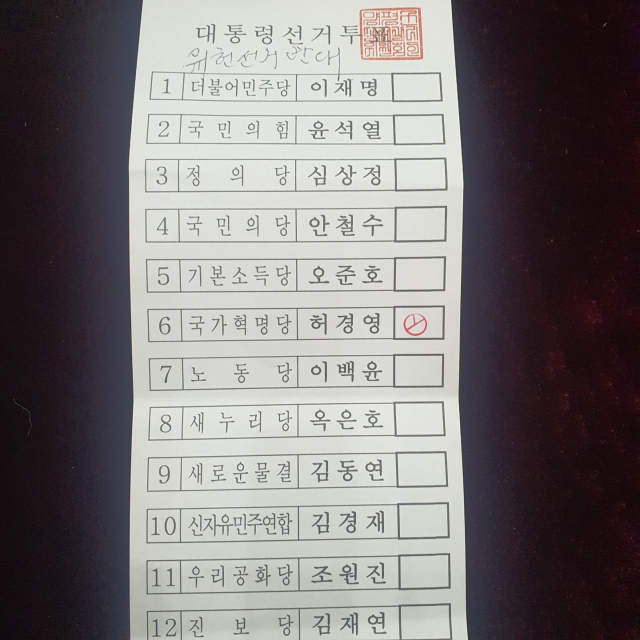 대통령선거투표
위헌선거 반대
1 더불어민주당 이재명
2 국민의힘 윤석열
3 정의당 심상정
4 국민의당 안철수
5 기본소득당 오준호
6 국가혁명당 허경영
7 노동당 이백윤
8 새누리당 옥은호
9 새로운물결 김동연
10 신자유민주연합 김경재
11 우리공화당 조원진
12 진보당 김재연